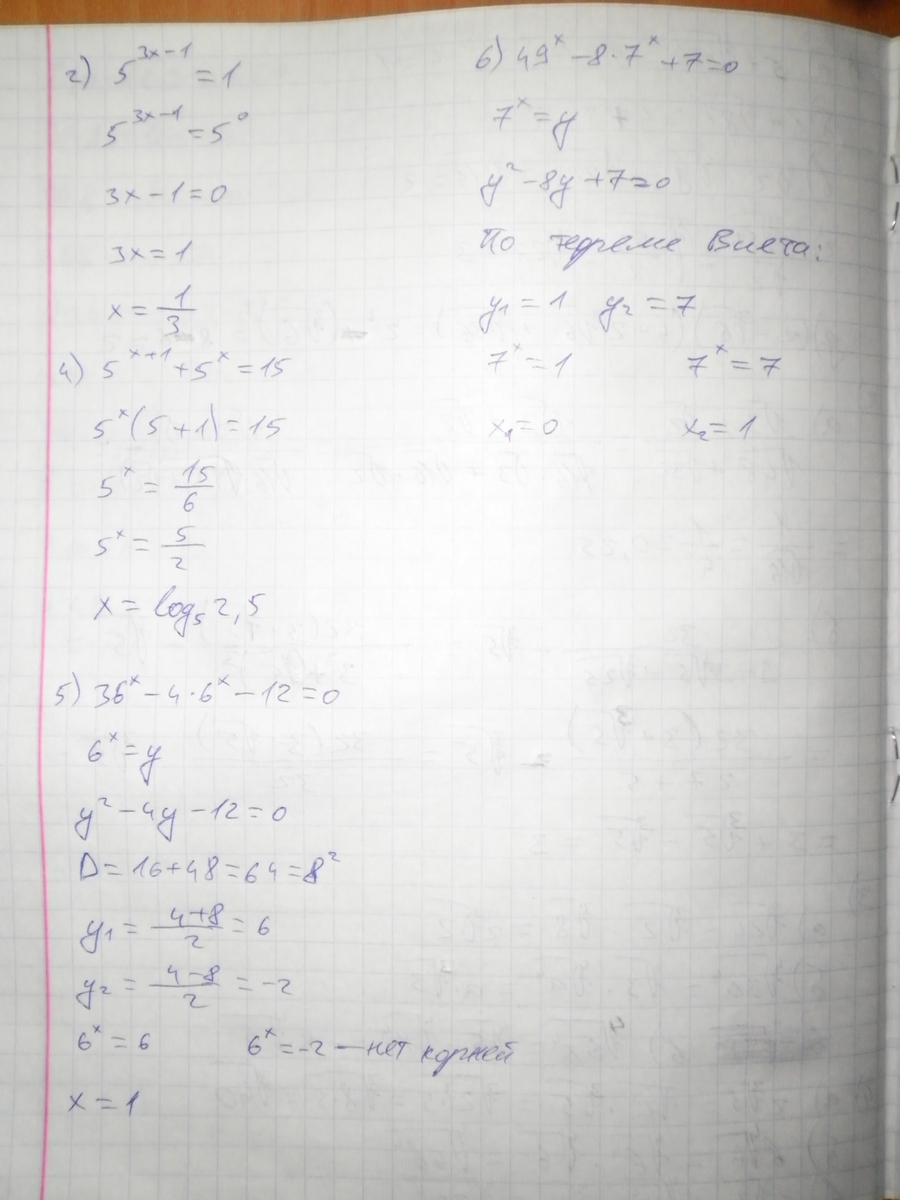 2) 5^{3x-1} = 1
5^{3x-1} = 5^0
3x - 1 = 0
3x = 1
x = 1/3
4) 5^{x+1} + 5^x = 15
5^x (5 + 1) = 15
5^x = 15/6
5^x = 5/2
x = log_5 2,5
5) 36^x - 4 · 6^x - 12 = 0
6^x = y
y^2 - 4y - 12 = 0
D = 16 + 48 = 64 = 8^2
y_1 = (4+8)/2 = 6
y_2 = (4-8)/2 = -2
6^x = 6     6^x = -2 — нет корней
x = 1
6) 49^x - 8 · 7^x + 7 = 0
7^x = y
y^2 - 8y + 7 = 0
По теореме Виета:
y_1 = 1   y_2 = 7
7^x = 1     7^x = 7
x_1 = 0     x_2 = 1